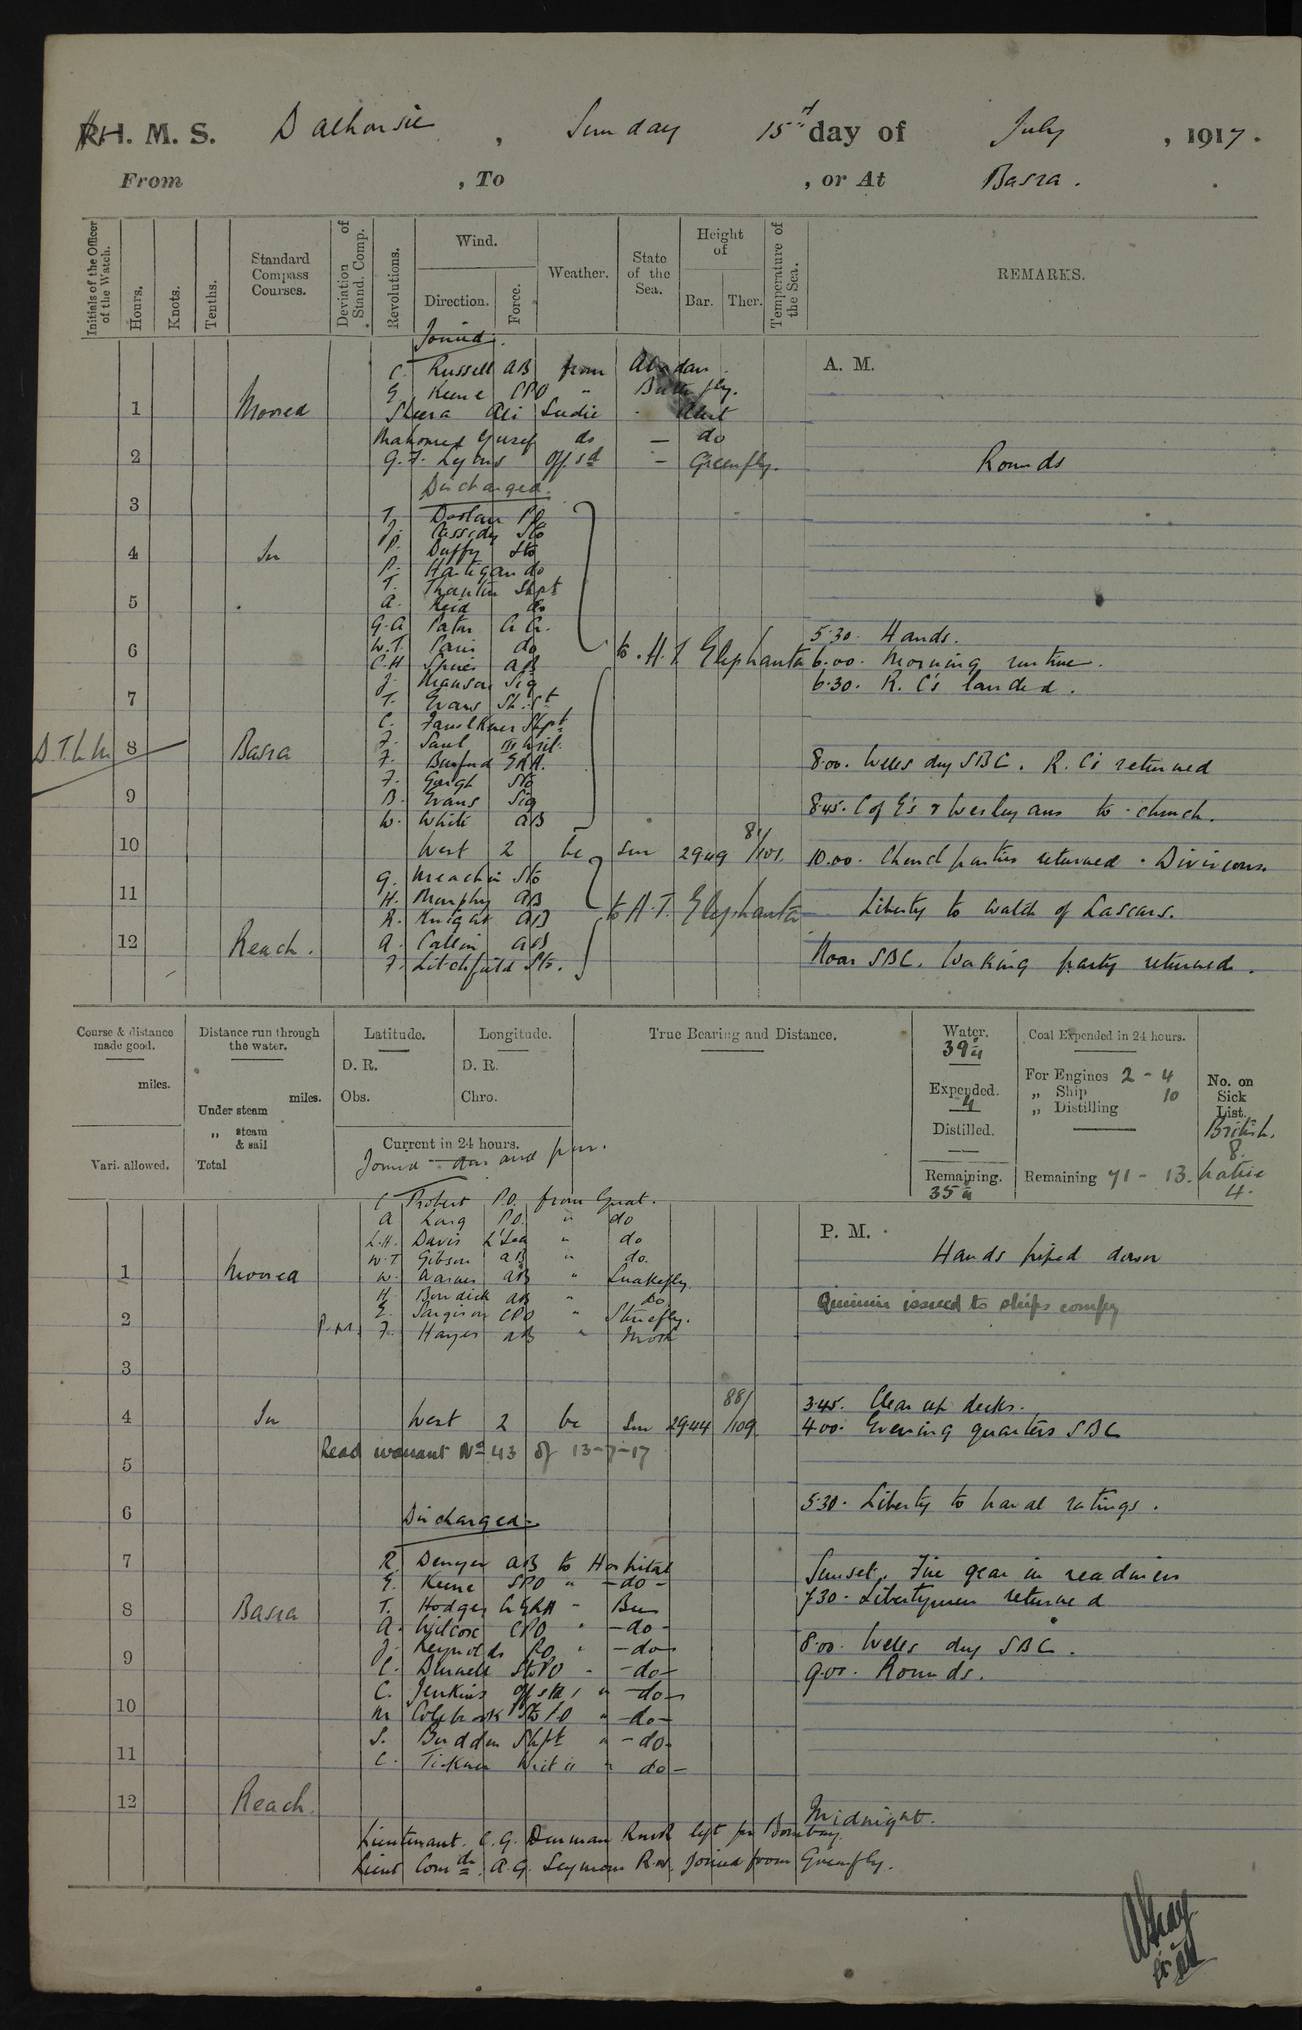 H. M. S. Dalhousie, Sunday 15th day of July, 1917.
From , To , or At Basra.
Initials of the Officer of the Watch.
Hours.
Knots.
Tenths.
Standard Compass Courses.
Deviation of Stand. Comp.
Revolutions.
Wind.
Direction.
Force.
Weather.
State of the Sea.
Height of
Bar.
Ther.
Temperature of the Sea.
REMARKS.
Joined.
A. M.
C. Russell AB from Abadan.
G. Keene CPO " Butterfly.
1 Moored
Sheera Ali Sudie - Alert
Mahomed Yusef do — do
2 G. F. Lyons Off. Sd — Greenfly.
Rounds
Discharged.
3
T. PO
J. Cassidy Sto
4 In
P. Duffy Sto
P. Hartigan do
T. Shpt
5
A. Reid do
G.A. Paton
W.T. do
5.30. Hands.
6
C.H. AB
to H.T. Elephanta
6.00. Morning routine.
J. Manson Sig
6.30. R.C's landed.
7
T. Evans Sh. St
C. Faulkner Shpt
D.T.L.M. 8 Basra
F. Saul III Writ.
F. Burford ERA.
8.00. Wells dry SBC. R.C's returned
F. Gough Sto
9
B. Evans Sig
8.45. C of E's & Wesleyans to church.
W. White AB
10
West 2 bc Sm 29.49 81/101.
10.00. Church parties returned. Divisions.
G. Meachin Sto
11
H. Murphy AB
R. Knight AB
to H.T. Elephanta
Liberty to watch of Lascars.
12 Reach.
A. Catlin AB
F. Litchfield Sto.
Noon SBC. Working party returned.
Course & distance made good.
miles.
Vari. allowed.
Distance run through the water.
miles.
Under steam
„ steam & sail
Total
Latitude.
D. R.
Obs.
Longitude.
D. R.
Chro.
Current in 24 hours.
True Bearing and Distance.
Water.
39
Expended.
4
Distilled.
—
Remaining.
35
Coal Expended in 24 hours.
For Engines 2 - 4
„ Ship 10
„ Distilling
Remaining 71 - 13.
No. on Sick List.
British.
8.
Native
4.
Joined
C. Robert P.O. from Gnat.
A Lang P.O. " do
P. M.
L.H. Davis L'Sea " do
W.T Gibson AB " do.
Hands piped down
1 Moored
W. Warner AB " Snakefly.
H. Burdick AB " Do.
Quinine issued to ships compy
2
E. Sargison CPO " Stonefly.
F. Hayes AB " Moth
3
3.45. Clear up decks.
4 In
West 2 bc Sm 29.44 88/109
4.00. Evening quarters SBC
Read warrant No 43 of 13-7-17
5
5.30. Liberty to naval ratings.
6
Discharged.
7
R. Denyer AB to Hospital
Sunset. Fire gear in readiness
G. Keene CPO " - do -
7.30. Libertymen returned
8 Basra
T. Hodges Ch ERA "
A. Wilcox CPO " - do -
8.00. Wells dry SBC.
J. Reynolds PO " - do -
9
C. StoPO " - do -
9.00. Rounds.
C. Jenkins Off Std " - do -
10
M Colebrook Sto PO " - do -
S. Budden Shpt " - do.
11
C. Tickner Writ " do -
12 Reach.
Midnight.
Lieutenant. C. G. Denman RNR left for Bombay.
Lieut Comdr. A. G. Seymour R.N. Joined from Greenfly.